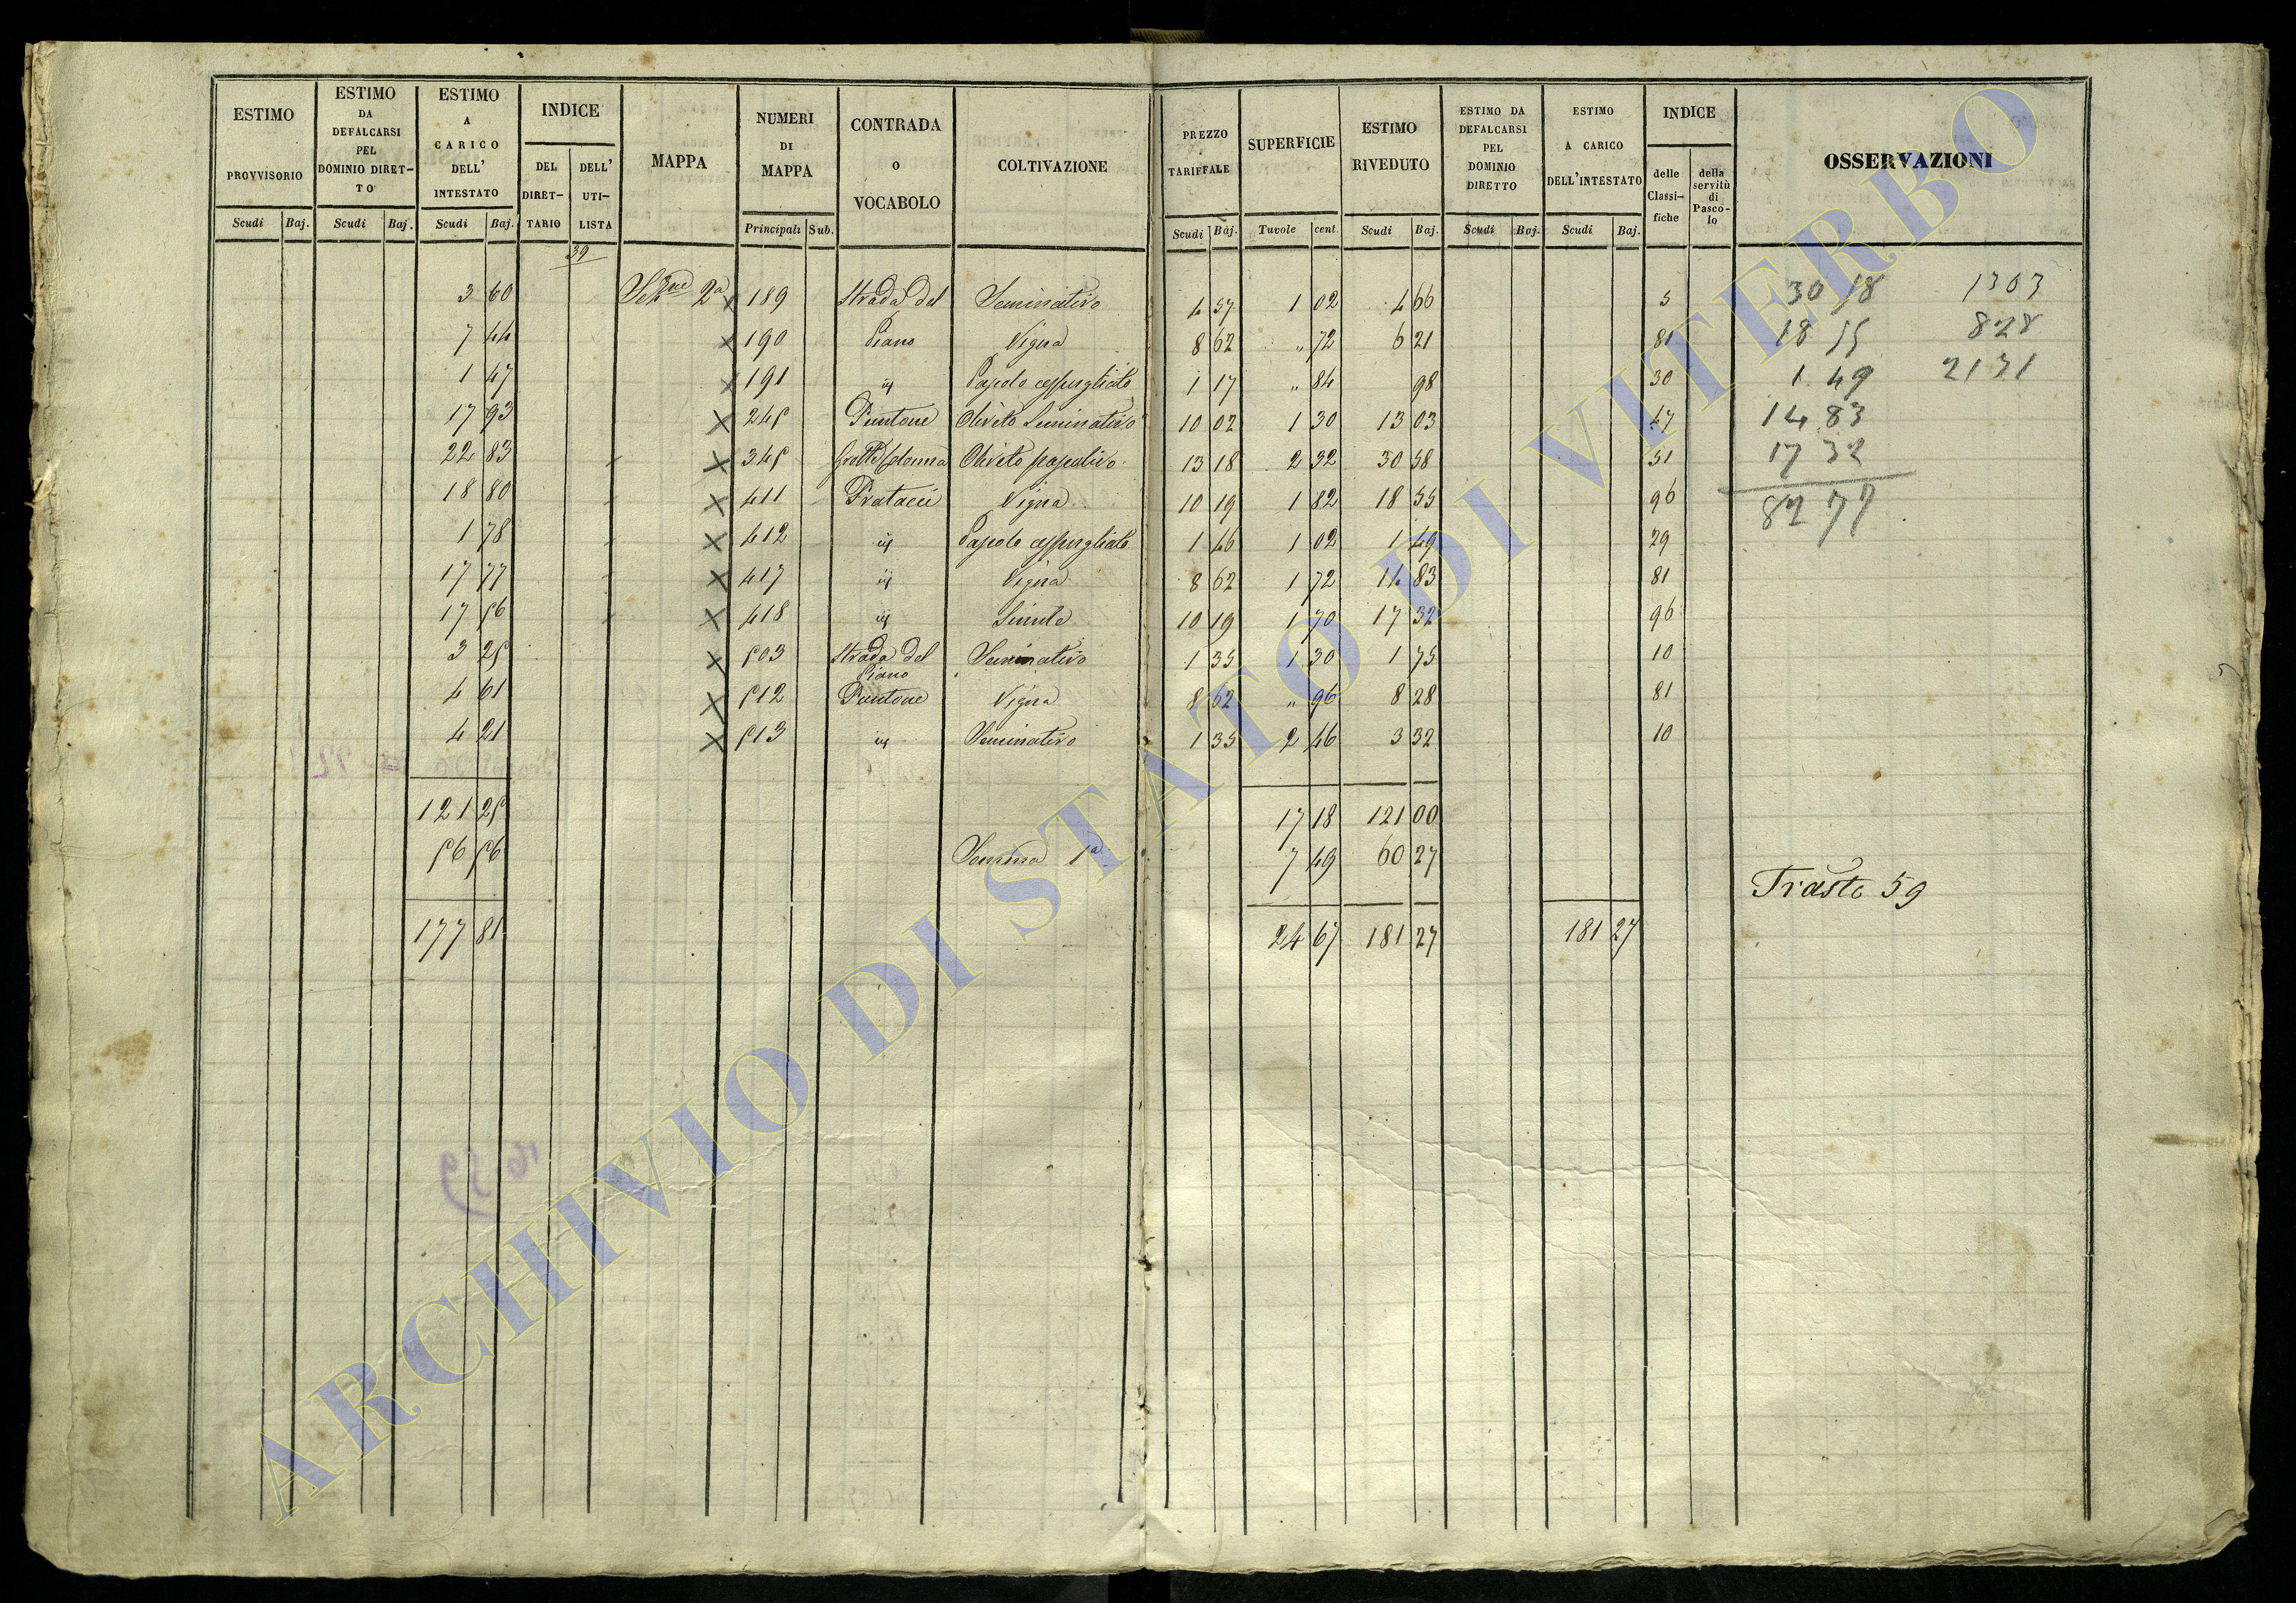 ESTIMO PROVVISORIO
ESTIMO DA DEFALCARSI PEL DOMINIO DIRET-TO
ESTIMO A CARICO DELL' INTESTATO
INDICE
DEL DIRET-TARIO
DELL' UTI-LISTA
MAPPA
NUMERI DI MAPPA
CONTRADA O VOCABOLO
COLTIVAZIONE
PREZZO TARIFFALE
SUPERFICIE
ESTIMO RIVEDUTO
ESTIMO DA DEFALCARSI PEL DOMINIO DIRETTO
ESTIMO A CARICO DELL'INTESTATO
INDICE
delle Classi-fiche
della servitù di Pasco-lo
OSSERVAZIONI
Scudi Baj. Scudi Baj. Scudi Baj. Principali Sub. Scudi Baj. Tavole cent. Scudi Baj. Scudi Baj. Scudi Baj.
39
3 60 Sezne 2a x 189 Strada del Seminativo 4 57 1 02 4 66 5
7 44 x 190 Piano Vigna 8 62 " 72 6 21 81
1 47 x 191 id Pascolo cespugliato 1 17 " 84 98 30
17 93 x 245 Puntone Oliveto Seminativo 10 02 1 30 13 03 47
22 83 x 345 Grotte Colonna Oliveto pascolivo 13 18 2 32 30 58 51
18 80 x 411 Pratacci Vigna 10 19 1 82 18 55 96
1 78 x 412 id Pascolo cespugliato 1 46 1 02 1 49 29
17 77 x 417 id Vigna 8 62 1 72 14 83 81
17 56 x 418 id Simile 10 19 1 70 17 32 96
3 25 x 503 Strada del Piano Seminativo 1 35 1 30 1 75 10
4 61 x 512 Puntone Vigna 8 62 " 96 8 28 81
4 21 x 513 id Seminativo 1 35 2 46 3 32 10
121 25 17 18 121 00
56 56 Somma 1a 7 49 60 27
177 81 24 67 181 27 181 27
30 58 1303
18 55 828
1 49 2131
14 83
17 32
82 77
Trasto 59
ARCHIVIO DI STATO DI VITERBO